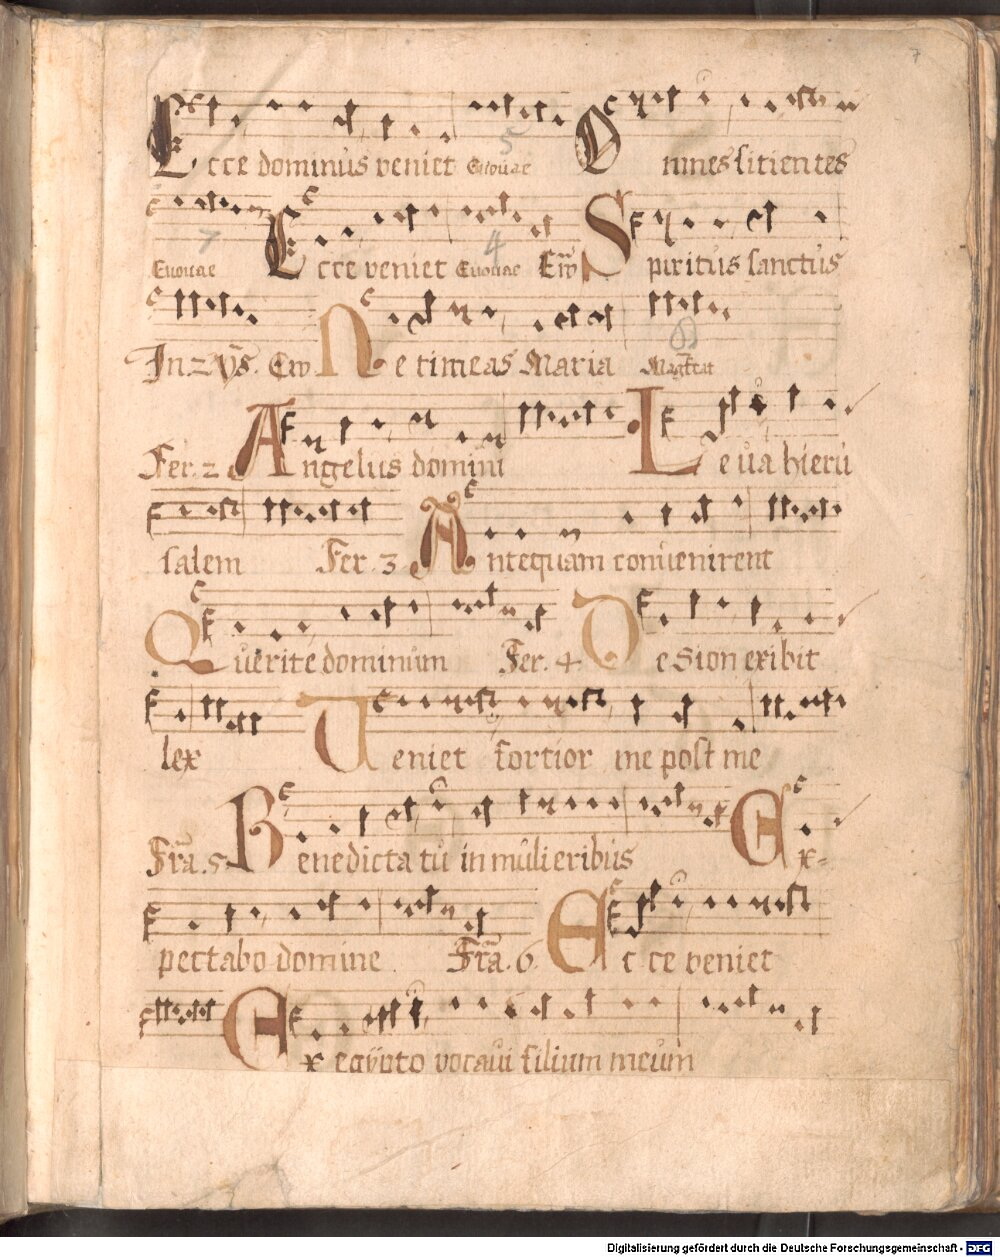 7
Ecce dominus veniet Euouae 5 Omnes sitientes
Euouae 7 Ecce veniet Euouae 4 Spiritus sanctus
Ne timeas Maria 8
Fer. 2 Angelus domini Leva hieru
salem Fer. 3 Antequam convenirent
Querite dominum Fer. 4 De Sion exibit
lex Veniet fortior me post me
Fra. 5 Benedicta tu in mulieribus Ex-
pectabo domine Fra. 6 Ecce veniet
Ex egypto vocavi filium meum
Digitalisierung gefördert durch die Deutsche Forschungsgemeinschaft - DFG